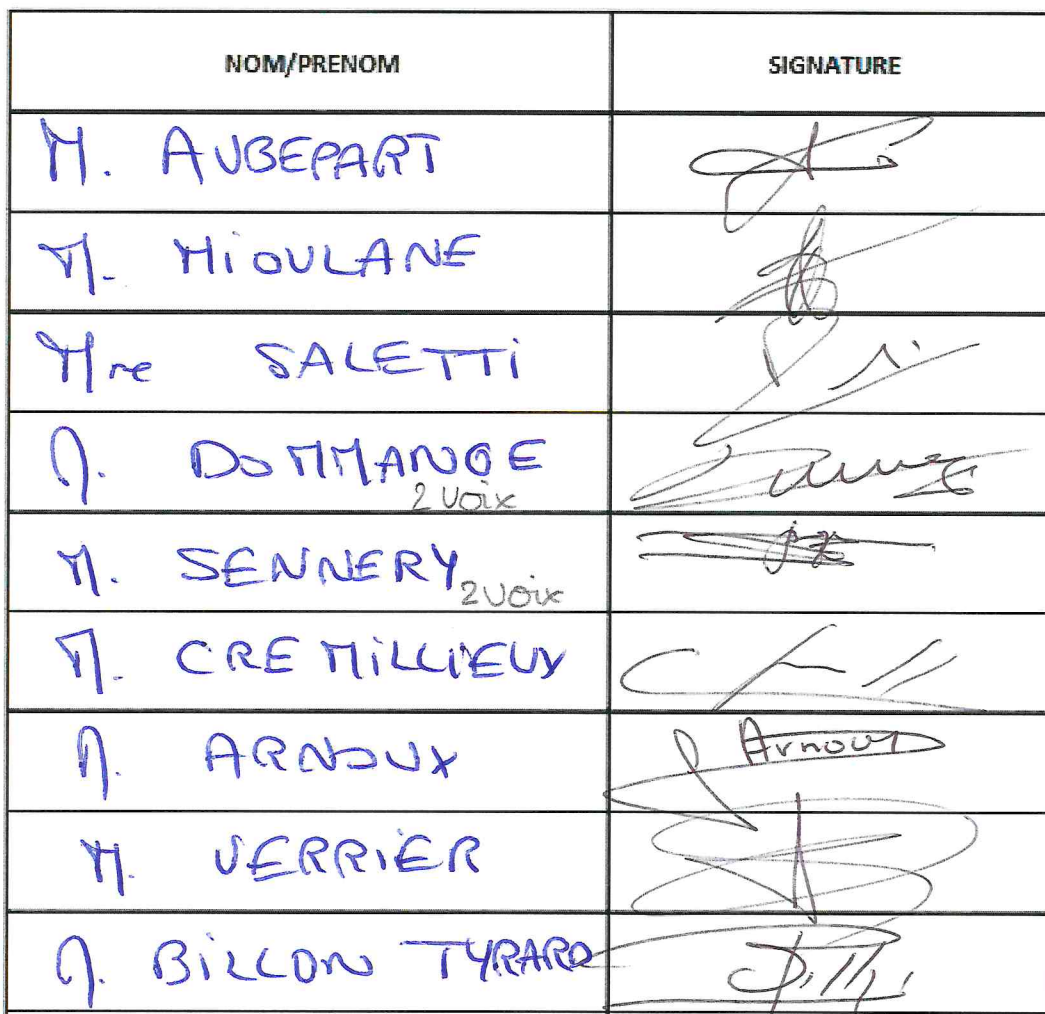 NOM/PRENOM SIGNATURE
M. AUBEPART
M. MiOULANE
Mme SALETTi
M. DOMMANGE
2 voix
M. SENNERY 2 voix
M. CREMiLLiEUX
M. ARNOUX Arnoux
M. VERRiER
M. BiLLON TYRARD